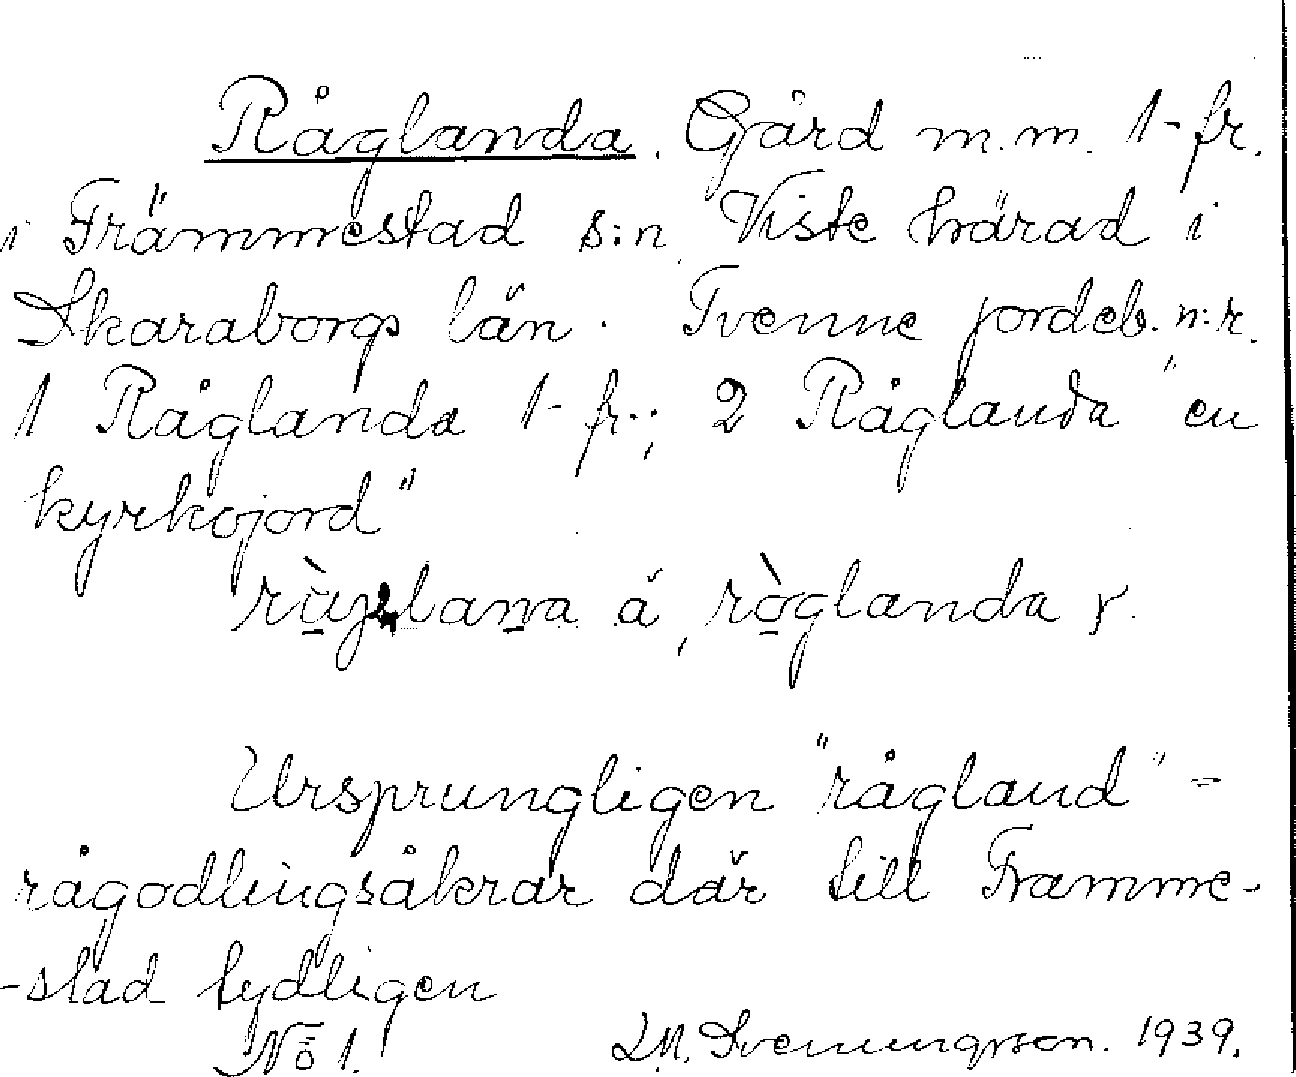 Råglanda. Gård m.m. 1-fr.
i Främmestad s:n, Viste härad i
Skaraborgs län. Tvenne jordeb. n:r.
1 Råglanda 1-fr.; 2 Råglanda "en
kyrkojord"
á, ròglanda r.
Ursprungligen "rågland" =
rågodlingsåkrar där till Framme-
-stad tydligen
No 1. Svenungsson. 1939.